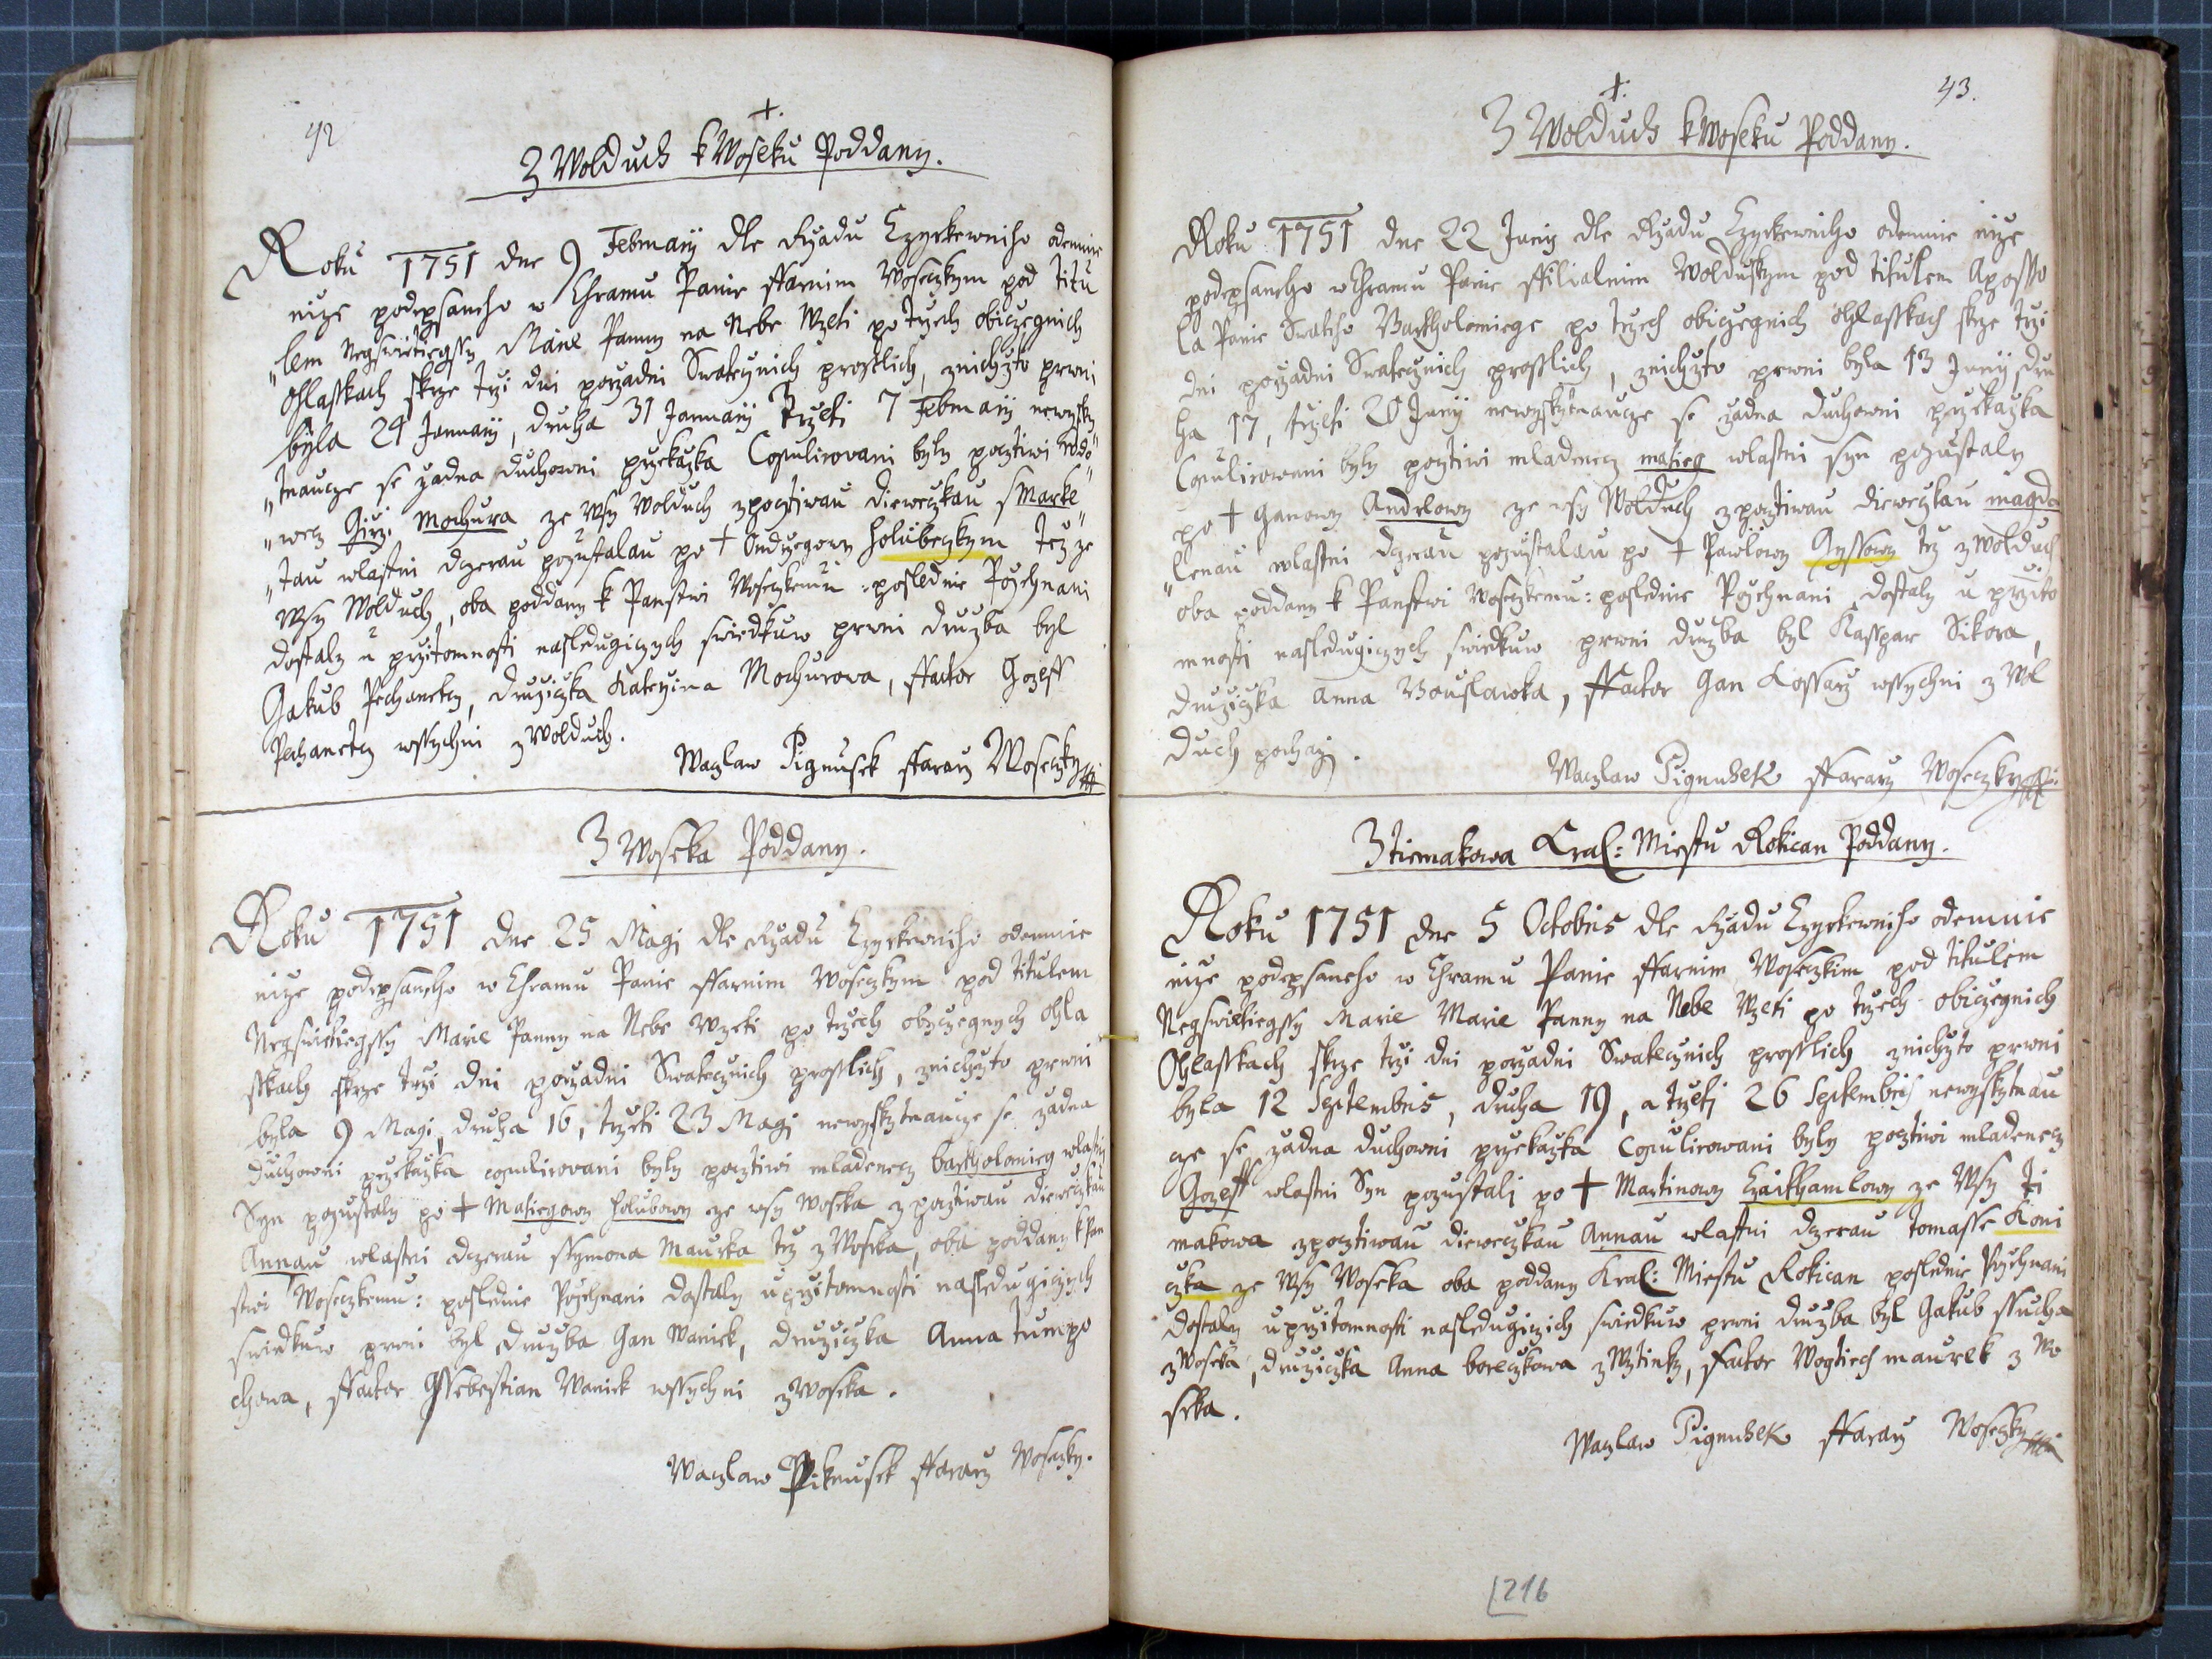 42
+.
Z Wolduch k Woseku Poddany.
Roku 1751 dne 9 Februarÿ dle Rzadu Czyrkewniho odemnie
nize podepsaneho w Chramu Panie ffarnim Woseczkym pod titu
"lem Negswietiegssy Marie Panny na Nebe Wzeti po trzech obiczegnich
Ohlasskach skrze trzi dni porzadni Swatecznich prosslich, znichzto prwni
byla 24 Januarÿ, druha 31 Januarÿ Trzeti 7 Februarÿ newyski
"tnaucze se zadna duchowni przekazka Copulirovani byly pocztiwi wdo"
"wecz Girzi Mochura ze Wsy Wolduch zpocztiwau dieweczkau s Marke"
"tau wlastni dczerau pozustalau po + Ondrzegowy Holubeczkym tez ze
Wsy Wolduch, oba poddany k Panstwi Woseczkemu: poslednie Pozehnani
dostaly u przitomnosti nasledugiczych swiedkuw prwni druzba byl
Gakub Pechanetcz, druziczka Katerzina Mochurowa, ffactor Gozeff
Pechanetcz wssychni z Wolduch.
Waczlaw Pignusek ffararz Woseczky
Z Woseka Poddany.
Roku 1751 dne 25 Magi dle Rzadu Czyrkewniho odemnie
nize podepsaneho w Chramu Panie ffarnim Woseczkym pod titulem
Negswietiegssy Marie Panny na Nebe Wzeti po trzech obyczegnych Ohla
sskach skrze trzi dni porzadni Swatecznich prosslich, znichzto prwni
byla 9 Magi, druha 16, trzeti 23 Magi newyskytnaucze se zadna
duchowni przekazka copulirovani byly pocztiwi mladenecz bartholomieg wlastni
Syn pozustaly po + Matiegowy Holubowy ze wsy Woseka z pocztiwau dieweczkau
Annau wlastni dczerau Ssymona Maurka tez z Woseka, oba poddany k Pan
stwi Woseczkemu: poslednie Pozehnani dostaly u przitomnosti nasledugiczych
swiedkuw prwni byl druzba Gan Wanick, druziczka Anna tumpo
chowa, ffactor Ssebestian Wanick wssychni z Woseka.
Waczlaw Piknusek ffararz Woseczky.
43.
+.
Z Wolduch k Woseku Poddany.
Roku 1751 dne 22 Junÿ dle Rzadu Czyrkewniho odemnie nize
podepsaneho w Chramu Panie ffilialnim Wolduskym pod titulem Aposto
la Panie Swateho Bartholomiege po trzech obiczegnich Ohlasskach skrze trzi
dni porzadni Swatecznich prosslich, znichzto prwni byla 13 Junÿ, dru
ha 17, trzeti 20 Junÿ newyskytnaucze se zadna duchowni przekazka
Copulirowani byly pocztiwi mladenecz matieg wlastni syn pozustaly
po + Ganowy Andrlowy ze wsy Wolduch z pocztiwau dieweczkau magda
"lenau wlastni dczerau pozustalau po + Pawlowy Gyssowy tez z Wolduch
oba poddany k Panstwi Woseczkemu: poslednie Pozehnani dostaly u przito
mnosti nasledugiczych swiedkuw prwni druzba byl Kasspar Sikora,
druziczka Anna Bouslawka, ffactor Gan Kossarz wssychni z Wol
duch pochazi.
Waczlaw Pignusek ffararz Woseczky
Z tiemakowa Kral: Miestu Rokican Poddany.
Roku 1751 dne 5 Octobris dle Rzadu Czyrkewniho odemnie
nize podepsaneho w Chramu Panie ffarnim Woseczkim pod titulem
Negswietiegssy Marie Marie Panny na Nebe Wzeti po trzech obiczegnich
Ohlasskach skrze trzi dni porzadni Swatecznich prosslich znichzto prwni
byla 12 Septembris, druha 19, a trzeti 26 Septembris newyskytnau
cze se zadna duchowni przekazka Copulirowani byly pocztiwi mladenecz
Gozeff wlastni Syn pozustali po + Martinowy Czaithamlowy ze Wsy Ti
makowa z pocztiwau dieweczkau Annau wlastni dczerau tomasse Koni
czka ze Wsy Woseka oba poddany Kral: Miestu Rokican poslednie Pozehnani
dostaly u przitomnosti nasledugiczich swiedkuw prwni druzba byl Gakub ssucha
z Woseka, druziczka Anna boreczkowa z Wztinky, factor Wogtiech maurek z Wo
seka.
Waczlaw Pignusek ffararz Woseczky
216